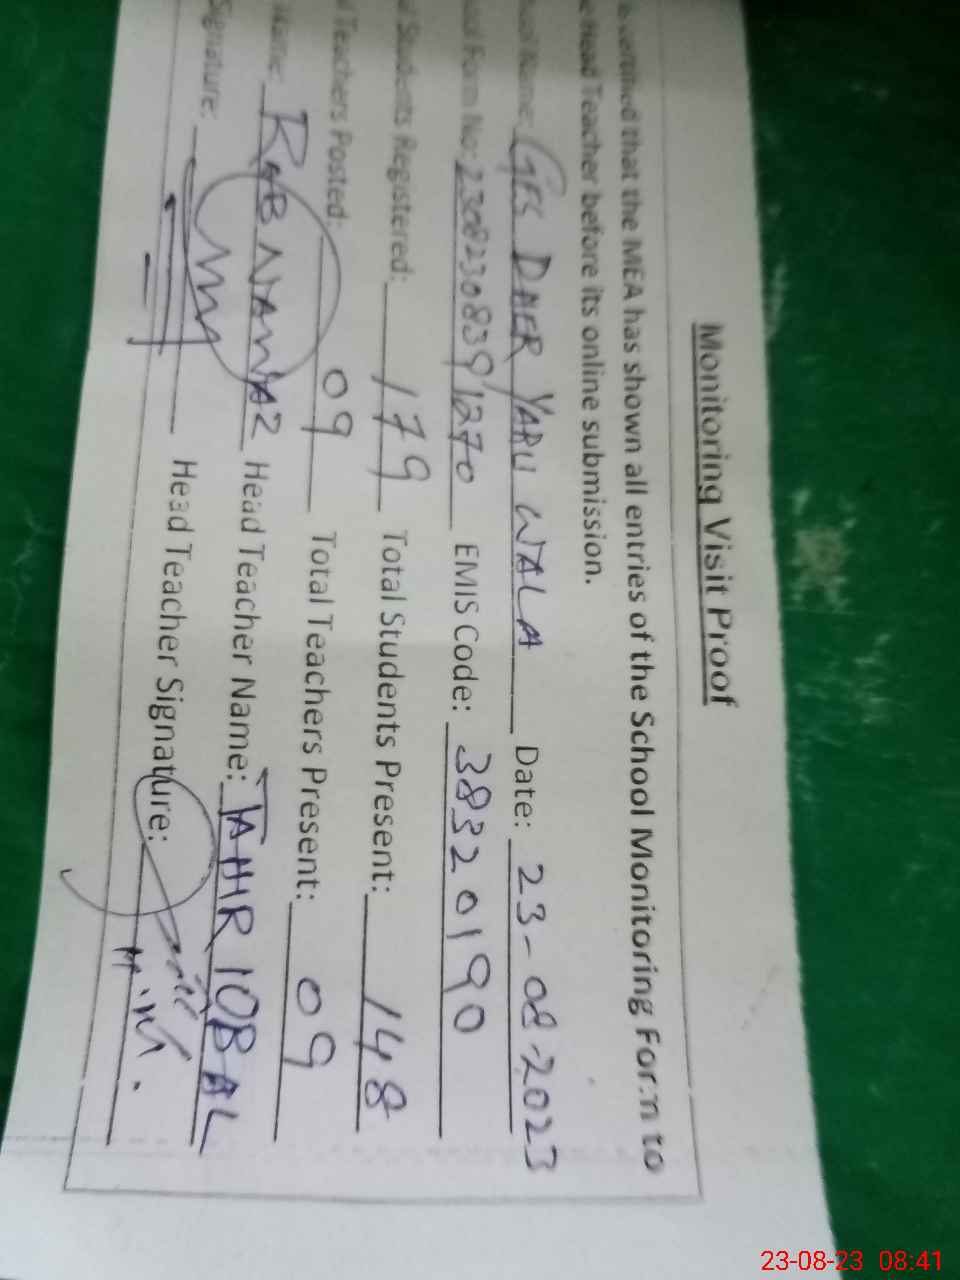 Monitoring Visit Proof
certified that the MEA has shown all entries of the School Monitoring Form to
Head Teacher before its online submission.
Name: GES DAER YARU WALA Date: 23-08-2023
Form No: 2308230839 1270 EMIS Code: 38320190
Students Registered: 179 Total Students Present: 148
Teachers Posted: 09 Total Teachers Present: 09
Name: RAB NAWAZ Head Teacher Name: TAHIR IQBAL
Signature: Head Teacher Signature:
23-08-23 08:41